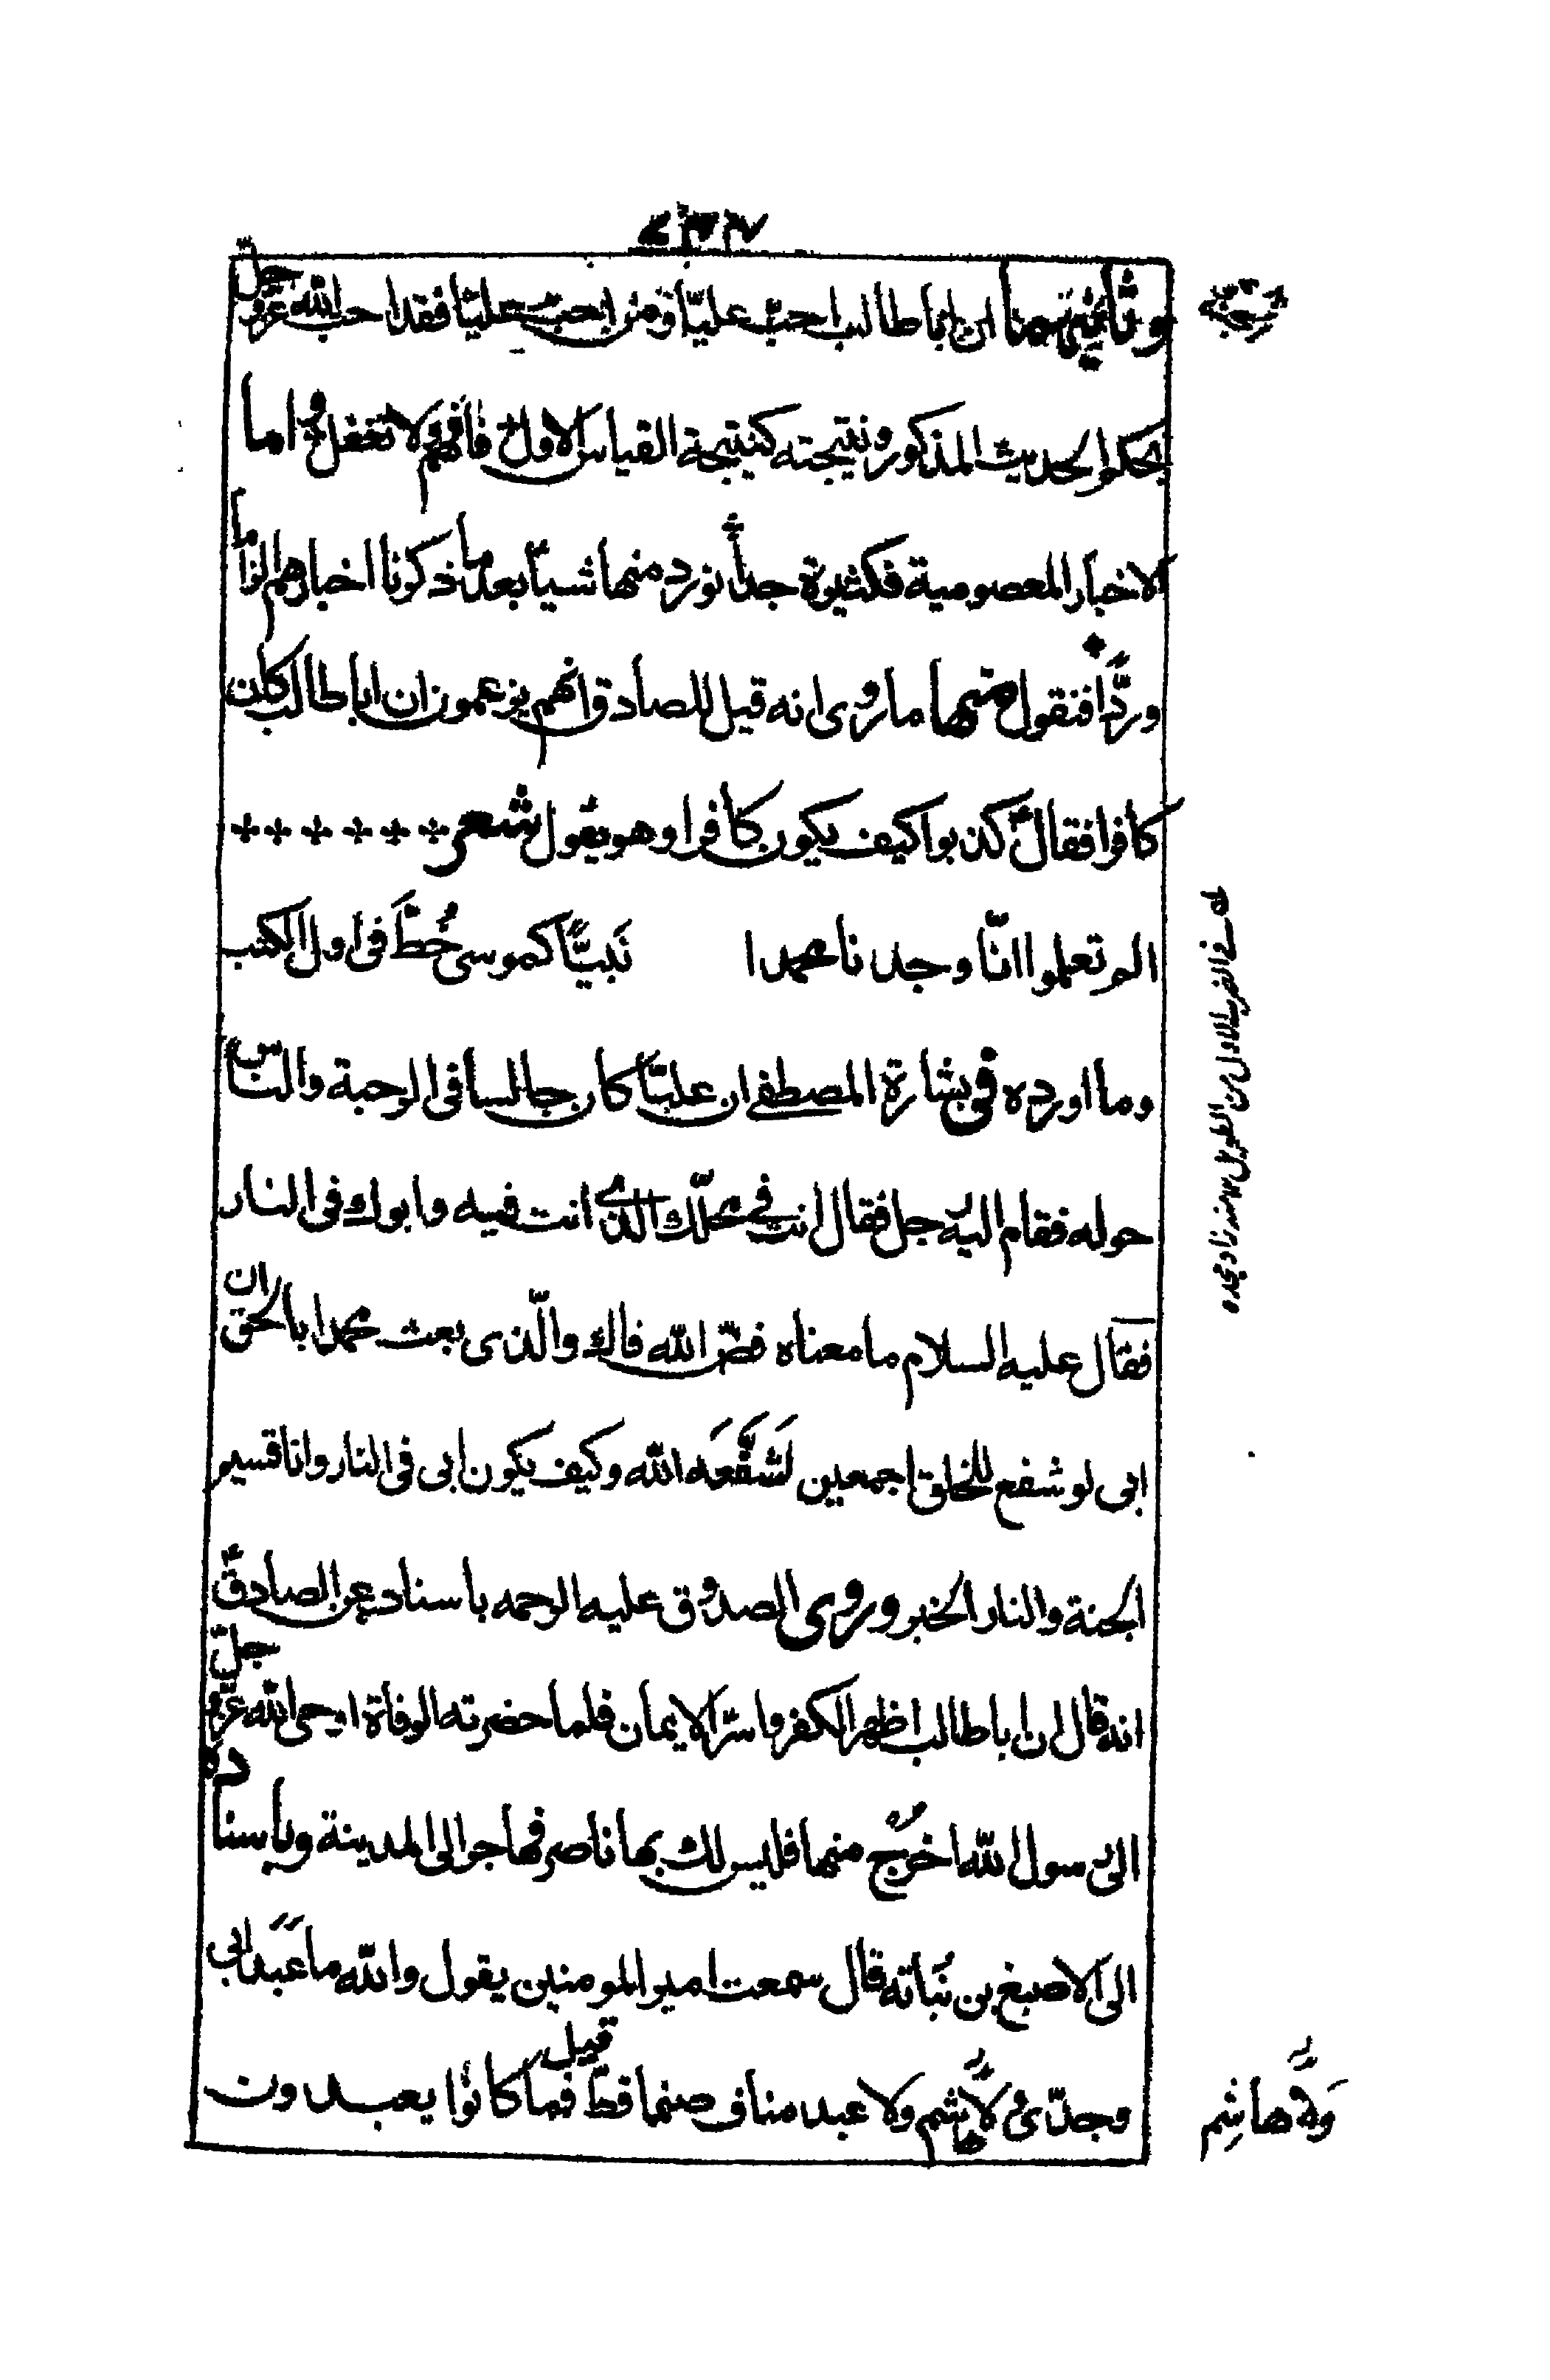 وثانيتهما ان ابا طالب احبّ عليّا ومن احب عليّا فقد احب الله عزّ وجلّ
بحكم الحديث المذكور ونتيجته كنتيجة القياس الاول فافهم ولا تغفل واما
الاخبار المعصومية فكثيرة جدا نورد منها شيأ بعد ما ذكرنا اخبارهم الزاما
وردّا فنقول منها ما روى انه قيل للصادق انهم يزعمون ان ابا طالب كان
كافرا فقال كذبوا كيف يكون كافرا وهو يقول شعر
الم تعلموا انّا وجدنا محمدا نَبيًّا كموسى خُطَّ في اول الكتب
وما اورده في بشارة المصطفى ان عليّا كان جالسا في الرحبة والناس
حوله فقام اليه رجل فقال انت في محلّك الذي انت فيه وابوك في النار
فقال عليه السلام ما معناه فضّ الله فاك والّذى بعث محمدا بالحق ان
ابى لو شفع للخلق اجمعين لَشَفَّعَه الله وكيف يكون ابى في النار وانا قسيم
الجنة والنار الخبر وروى الصدوق عليه الرحمه باسناده عن الصادق
انه قال ان ابا طالب اظهر الكفر واسرّ الايمان فلما حضرته الوفاة اوحى الله عزّ وجلّ
الى رسول الله اخرج منها فليس لك بها ناصر فهاجر الى المدينة وباسناده
الى الاصبغ بن نُباته قال سمعت امير المومنين يقول والله ما عَبَد ابى
وجدّى ولا هاشم ولا عبد مناف صنما قطّ قيل فما كانوا يعبدون
وَلا هاشِم
في الضرب الاول من الطويل منه زاد مجده